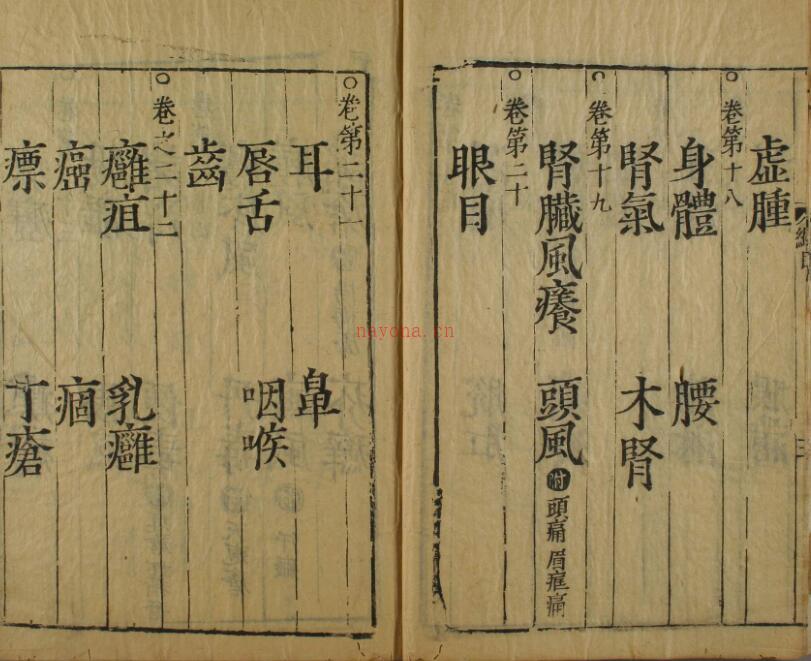 虛腫
○卷第十八
身體 腰
腎氣 木腎
○卷第十九
腎臟風癢 頭風 附 頭痛 眉眶痛
○卷第二十
眼目
○卷第二十一
耳 鼻
唇舌 咽喉
齒
○卷之二十二
癰疽 乳癰
癌 痼
瘭 丁瘡
nayona.cn